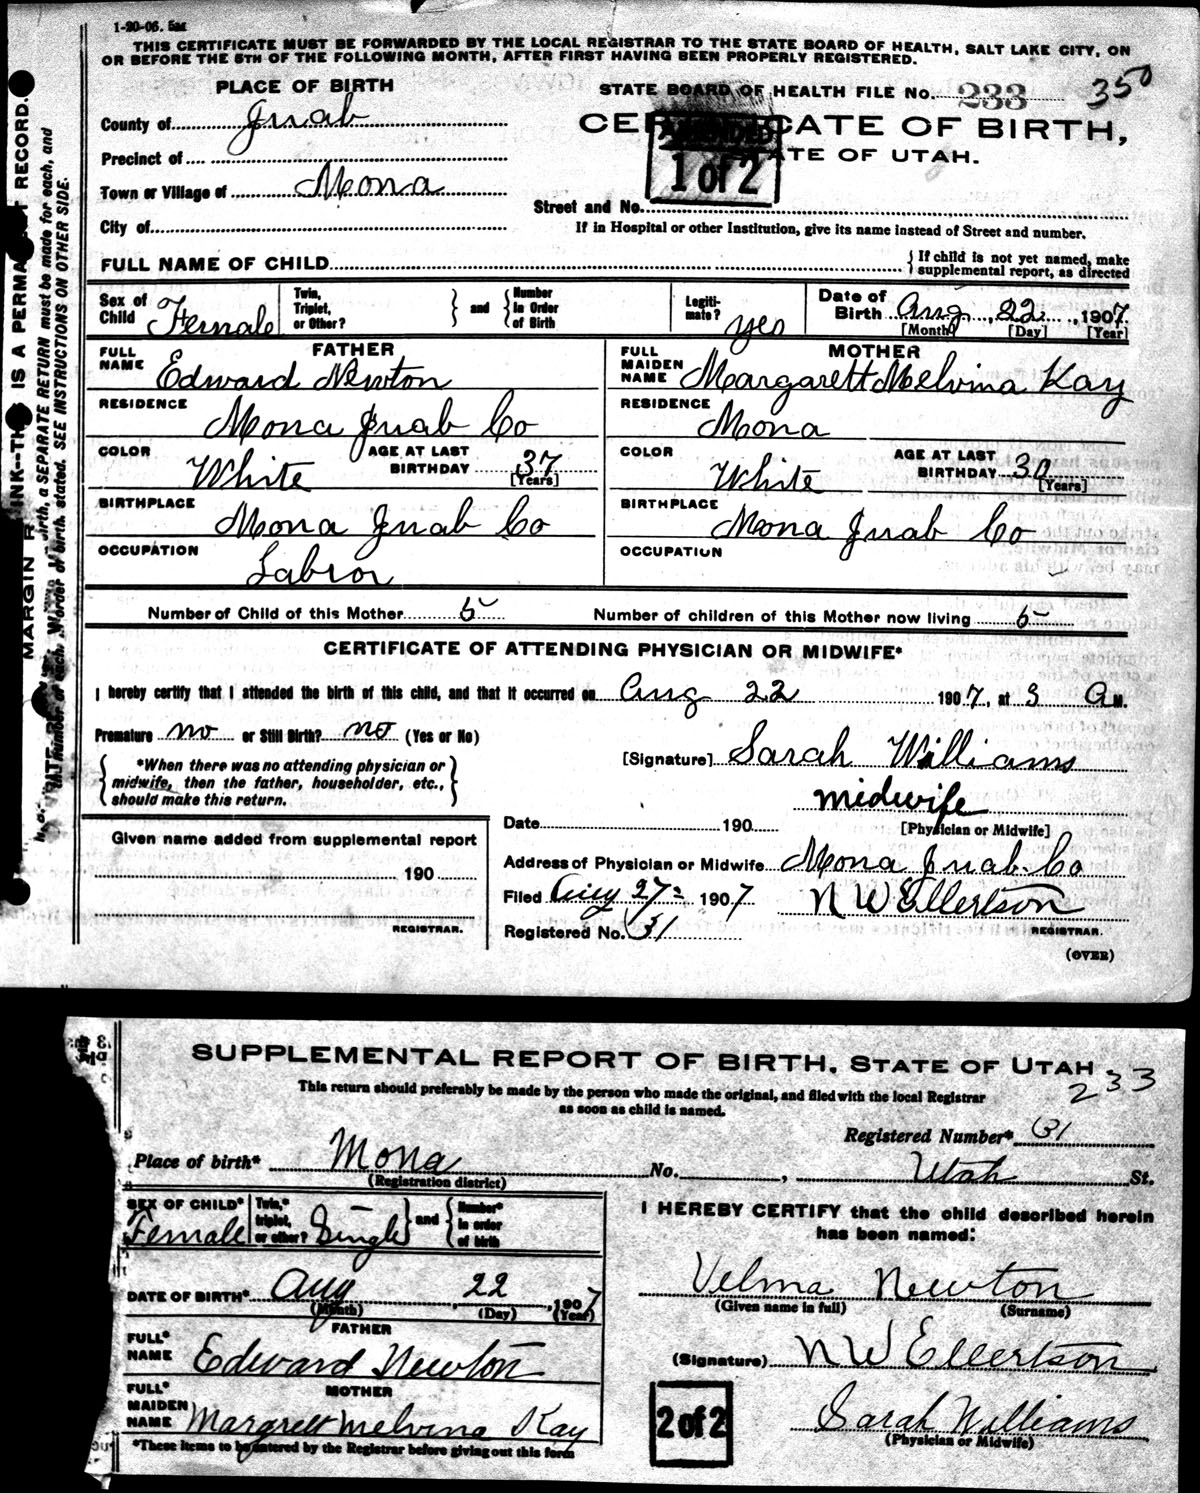 1-20-06. 5M
THIS CERTIFICATE MUST BE FORWARDED BY THE LOCAL REGISTRAR TO THE STATE BOARD OF HEALTH, SALT LAKE CITY, ON
OR BEFORE THE 5TH OF THE FOLLOWING MONTH, AFTER FIRST HAVING BEEN PROPERLY REGISTERED.
PLACE OF BIRTH
STATE BOARD OF HEALTH FILE No. 233 350
County of Juab
CERTIFICATE OF BIRTH,
Precinct of
STATE OF UTAH.
AMENDED
1 of 2
Town or Village of Mona
Street and No.
City of
If in Hospital or other Institution, give its name instead of Street and number.
FULL NAME OF CHILD { If child is not yet named, make
supplemental report, as directed
Sex of Child Female Twin, Triplet, or Other? } and { Number in Order of Birth Legiti-mate? yes Date of Birth Aug 22, 1907
[Month] [Day] [Year]
FATHER MOTHER
FULL NAME Edward Newton FULL MAIDEN NAME Margarett Melvina Kay
RESIDENCE Mona Juab Co RESIDENCE Mona
COLOR White AGE AT LAST BIRTHDAY 37 [Years] COLOR White AGE AT LAST BIRTHDAY 30 [Years]
BIRTHPLACE Mona Juab Co BIRTHPLACE Mona Juab Co
OCCUPATION Labror OCCUPATION
Number of Child of this Mother 5 Number of children of this Mother now living 5
CERTIFICATE OF ATTENDING PHYSICIAN OR MIDWIFE*
I hereby certify that I attended the birth of this child, and that it occurred on Aug 22 1907, at 3 A M.
Premature no or Still Birth? no (Yes or No)
[Signature] Sarah Williams
*When there was no attending physician or
midwife, then the father, householder, etc.,
should make this return.
midwife
Date 190 [Physician or Midwife]
Given name added from supplemental report
190
REGISTRAR.
Address of Physician or Midwife Mona Juab Co
Filed Aug 27 1907 N W Ellertson
Registered No. 31 REGISTRAR.
(OVER)
SUPPLEMENTAL REPORT OF BIRTH, STATE OF UTAH
233
This return should preferably be made by the person who made the original, and filed with the local Registrar
as soon as child is named.
Registered Number* 31
Place of birth* Mona No. , Utah St.
(Registration district)
SEX OF CHILD* Female Twin,* triplet, or other? Single } and { Number* in order of birth
I HEREBY CERTIFY that the child described herein
has been named:
DATE OF BIRTH* Aug 22, 1907
(Month) (Day) (Year)
Velma Newton
(Given name in full) (Surname)
FATHER
FULL* NAME Edward Newton
(Signature) N W Ellertson
MOTHER
FULL* MAIDEN NAME Margrett Melvina Kay
2 of 2
Sarah Williams
(Physician or Midwife)
*These items to be entered by the Registrar before giving out this form